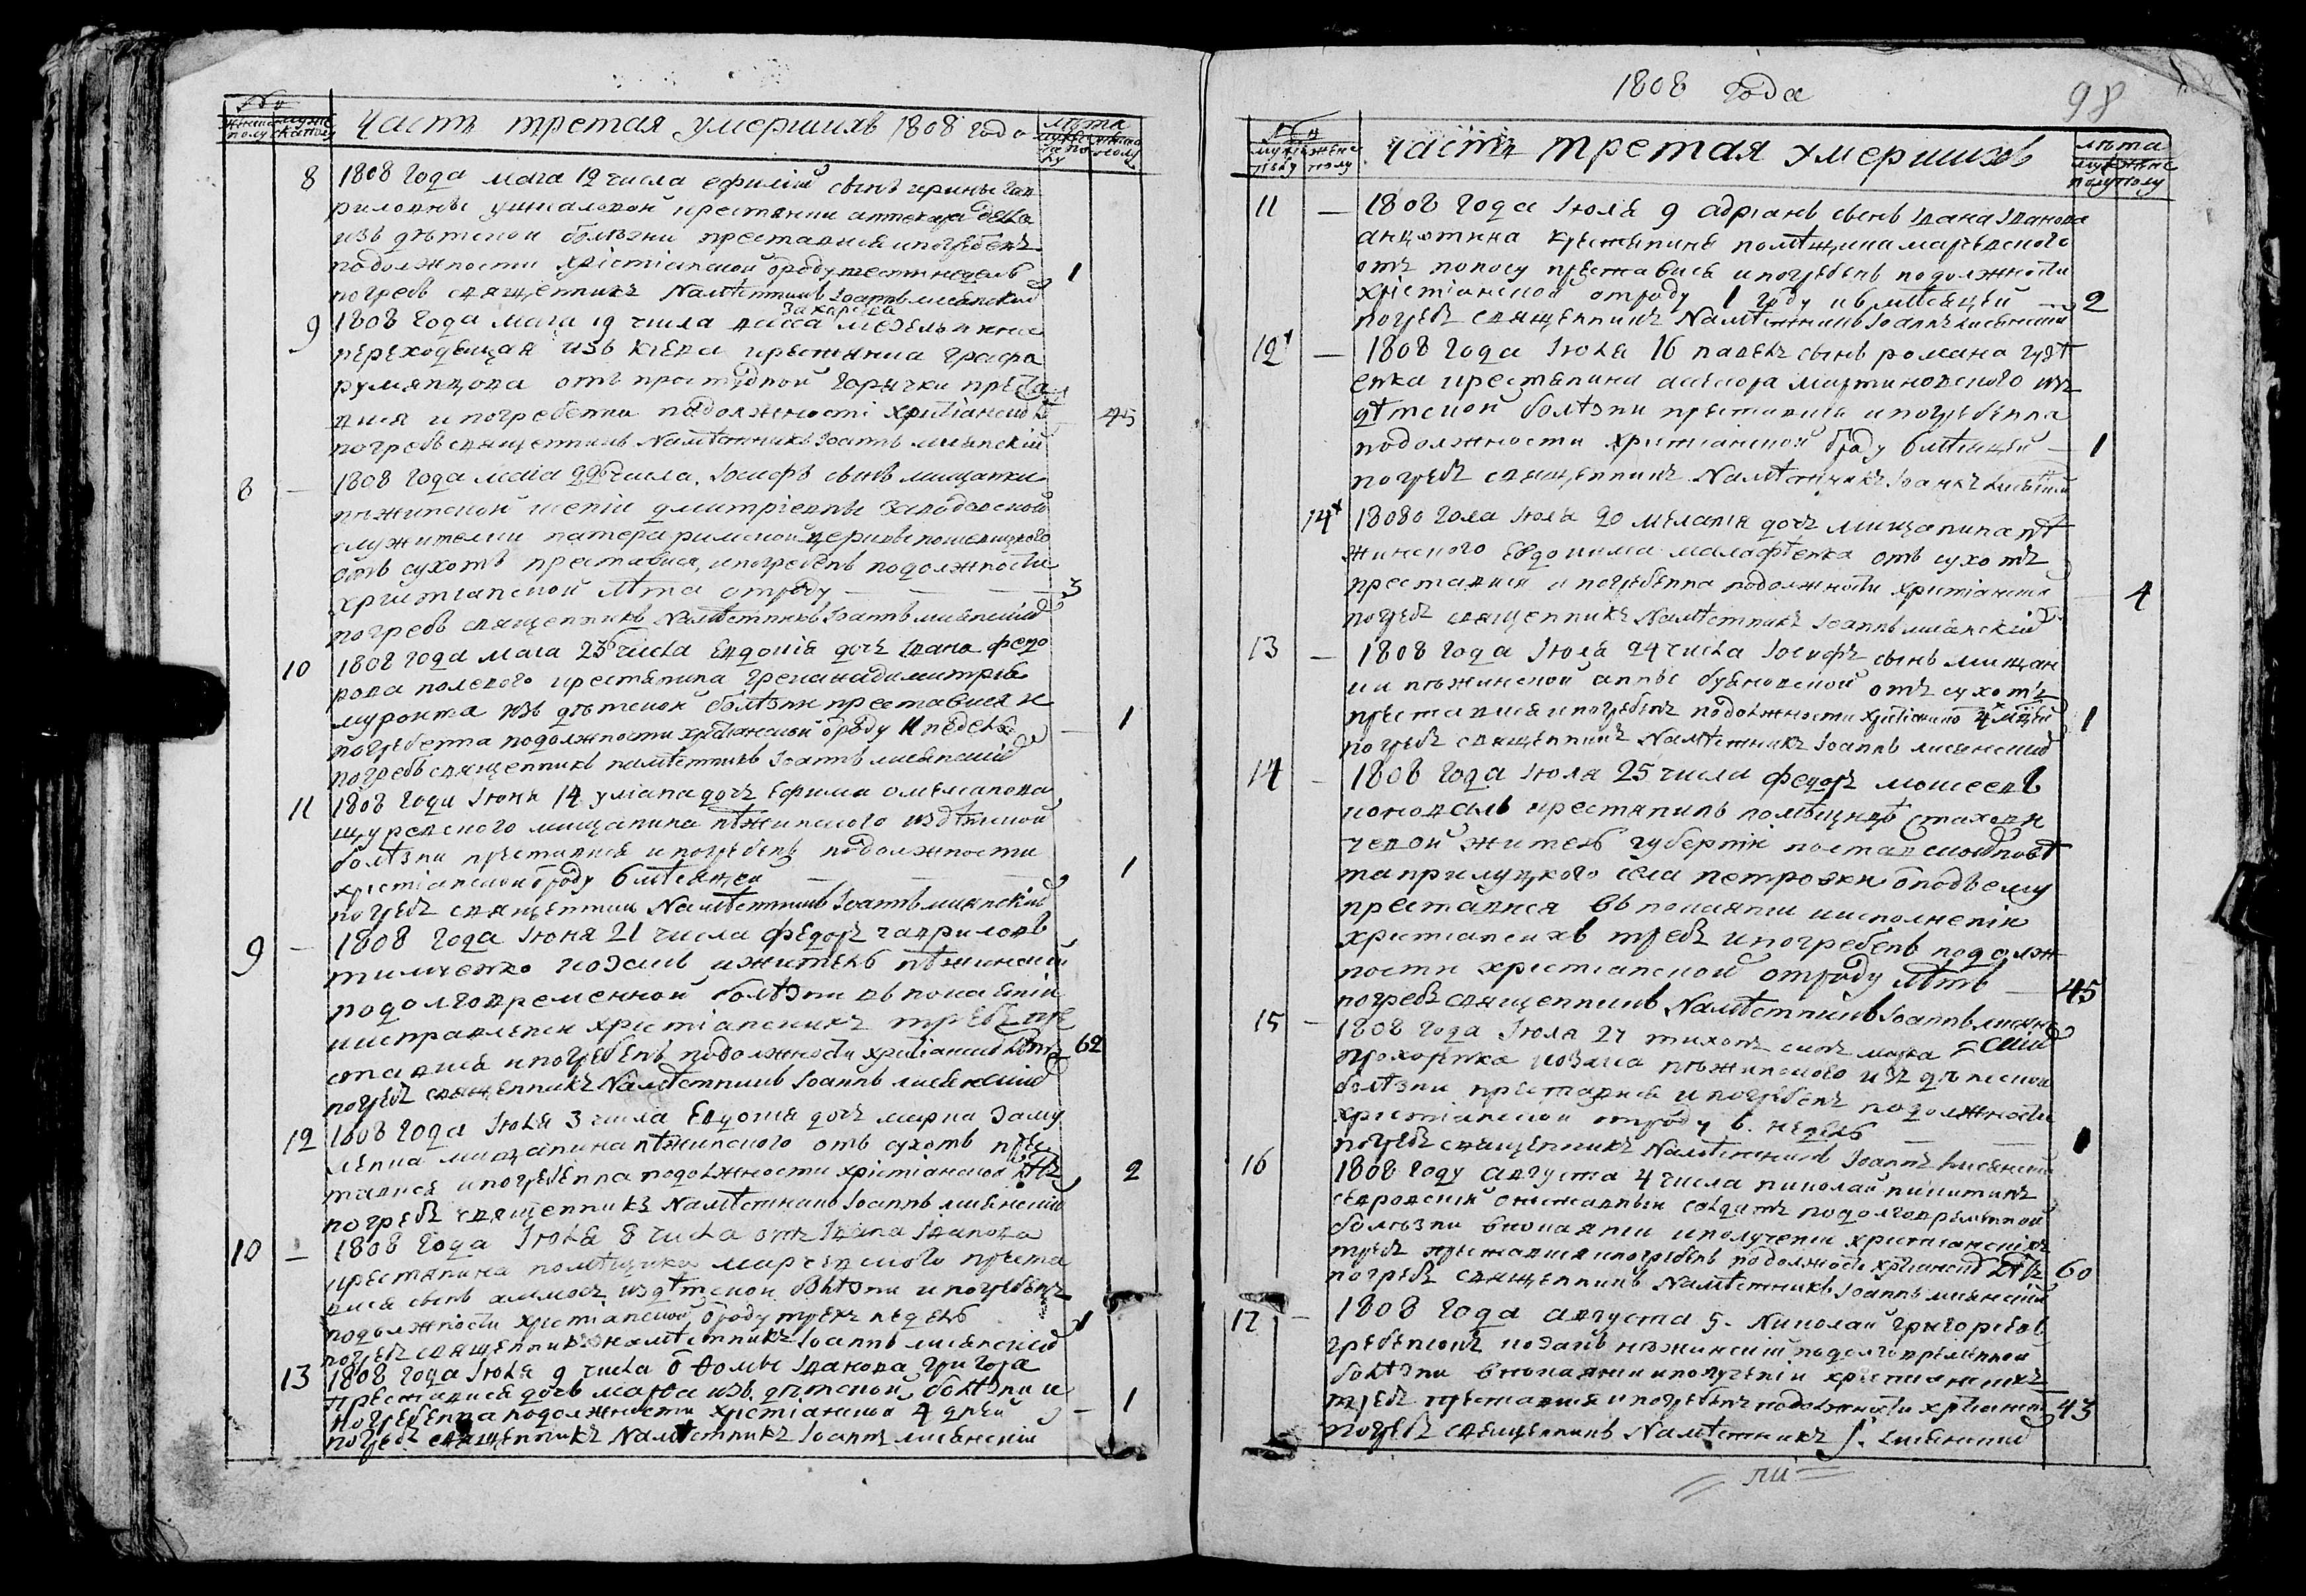 Часть третая умершихъ 1808 года
лѣта
8 1808 года мая 12 числа сынъ ирины гав
риловны крестянки аптекаря
изъ дѣтской болѣзни преставися и погребенъ
подолжности христіанской отроду шести недель 1
погребъ священникъ Намѣстникъ Іоаннъ лисянскій
захарова
9 1808 года мая 19 числа васса
переходящая изъ кіева крестянка графа
румянцова отъ простудной горячки преста
вися и погребенна подолжности христіанской 45
погребъ священникъ Намѣстникъ Іоаннъ лисянскій
8 – 1808 года маіа 22 числа Іосифъ сынъ мищанки
нѣжинской ксеніи дмитріевны
служителки патера римской церквы
отъ сухотъ преставися, и погребенъ подолжности
християнской лѣта отроду 3
погребъ священникъ Намѣстникъ Іоаннъ лисянскій
10 1808 года мая 23 числа Евдокія дочь Ивана федо
рова полевого крестянина грека димитрія
муронта изъ дѣтской болѣзни преставися и
погребенна подолжности христіанской отроду 11 недель 1
погребъ священникъ намѣстникъ Іоаннъ лисянскій
11 1808 года Іюня 14 уліана дочь Ефима омеляновa
щуревского мищанина нѣжинского из дѣтской
болѣзни преставися и погребенъ подолжности
христіанской отроду 6 мѣсяцей 1
погребъ священник Намѣстникъ Іоаннъ лисянскій
9 – 1808 года Іюня 21 числа федоръ гаврилов
тимченко козакъ и житель нѣжинскій
подолговременной болѣзни въ покаяніи
и исправленіи христіанскихъ требъ пре
ставися и погребенъ подолжности христіанской лѣтъ 62
погребъ священникъ Намѣстникъ Іоаннъ лисянскій
12 1808 года Іюля 3 числа Евдокия дочь марка
мищанина нѣжинского отъ сухотъ прес
тавися и погребенна подолжности христіанской лѣтъ 2
погребъ священникъ Намѣстникъ Іоаннъ лисянскій
10 – 1808 года Іюля 8 числа отъ Івана Іванова
крестянина помѣщика марчевского преста
вися сынъ из дѣтской болѣзни и погребенъ
подолжности христіанской, отроду трехъ недель 1
погребъ священникъ намѣстникъ Іоаннъ лисянскій
13 1808 года Іюля 9 числа Ѳомы Іванова григора
преставися дочь марѳа изъ дѣтской болѣзни и
погребенна подолжности христіанской 4 дней – 1
погребъ священникъ Намѣстникъ Іоаннъ лисянскій
1808 года
98
Часть третая умершихъ
лѣта
11 – 1808 года Іюля 9 адріанъ сынъ Ивана Іванова
крестянина помѣщика марчевского
отъ поносу преставися и погребенъ подолжности
христіанской отроду 1 году и 6 мѣсяцей – 2
погребъ священникъ Намѣстникъ Іоаннъ лисянскій
12 – 1808 года Іюля 16 павелъ сынъ романа
енка крестянина асесора мартиновского изъ
дѣтской болѣзни преставися и погребенна
подолжности християнской отроду 6 мѣсяцей – 1
погребъ священникъ Намѣстникъ Іоаннъ лисянскій
14 18080 года Іюля 20 меланія дочь мищанина нѣ
жинского Евдокима малафѣенка отъ сухотъ
преставися и погребенна подолжности христіанской 4
погребъ священникъ Намѣстникъ Іоаннъ лисянскій
13 – 1808 года Іюля 24 числа Іосифъ сынъ мищан
ки нѣжинской анны отъ сухотъ
преставися и погребенъ подолжности христіанской 4 мѣсяцей 1
погребъ священникъ Намѣстникъ Іоаннъ лисянскій
14 – 1808 года Іюля 25 числа федоръ мойсеевъ
коновалъ крестянинъ помѣщицѣ стахови
чевой житель губерніи полтавской повѣ
та прилуцкого села петровки
преставися въ покаяни и исполненіи
христіанскихъ требъ и погребенъ подолж
ности христіанской отроду лѣтъ – 45
погребъ священникъ Намѣстникъ Іоаннъ лисян
скій
15 – 1808 года Іюля 27 тихонъ синъ марка
прохоренка козака нѣжинского изъ дѣтской
болѣзни преставися и погребенъ подолжности
христіанской отроду 6. недель 1
погребъ священникъ Намѣстникъ Іоаннъ лисянскій
16 1808 году августа 4 числа николай никитинъ
отставный солдатъ подолговременной
болѣзни въ покаяніи и полученіи христіанскіхъ
требъ преставися и погребенъ подолжности христіанской лѣтъ 60
погребъ священникъ Намѣстникъ Іоаннъ лисянскій
17 – 1808 года августа 5. Николай григоріевъ
гребенюкъ козакъ нѣжинскій подолговременной
болѣзни въ покаянии и полученіи христианскихъ
требъ преставися и погребенъ подолжности христіанской 43
погребъ священникъ Намѣстникъ І. лисянскій